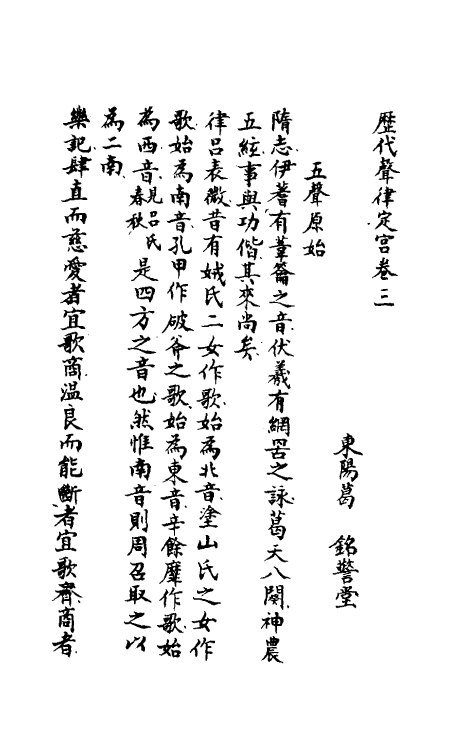 歷代聲律定宮卷三
東陽葛 銘警堂
五聲原始
隋志伊耆有葦籥之音伏羲有網罟之詠葛天八闋神農
五絃事與功偕其來尚矣
律呂表微昔有娀氏二女作歌始為北音塗山氏之女作
歌始為南音孔甲作破斧之歌始為東音辛餘靡作歌始
為西音見呂氏春秋是四方之音也然惟南音則周召取之以
為二南
樂記肆直而慈愛者宜歌商溫良而能斷者宜歌齊商者